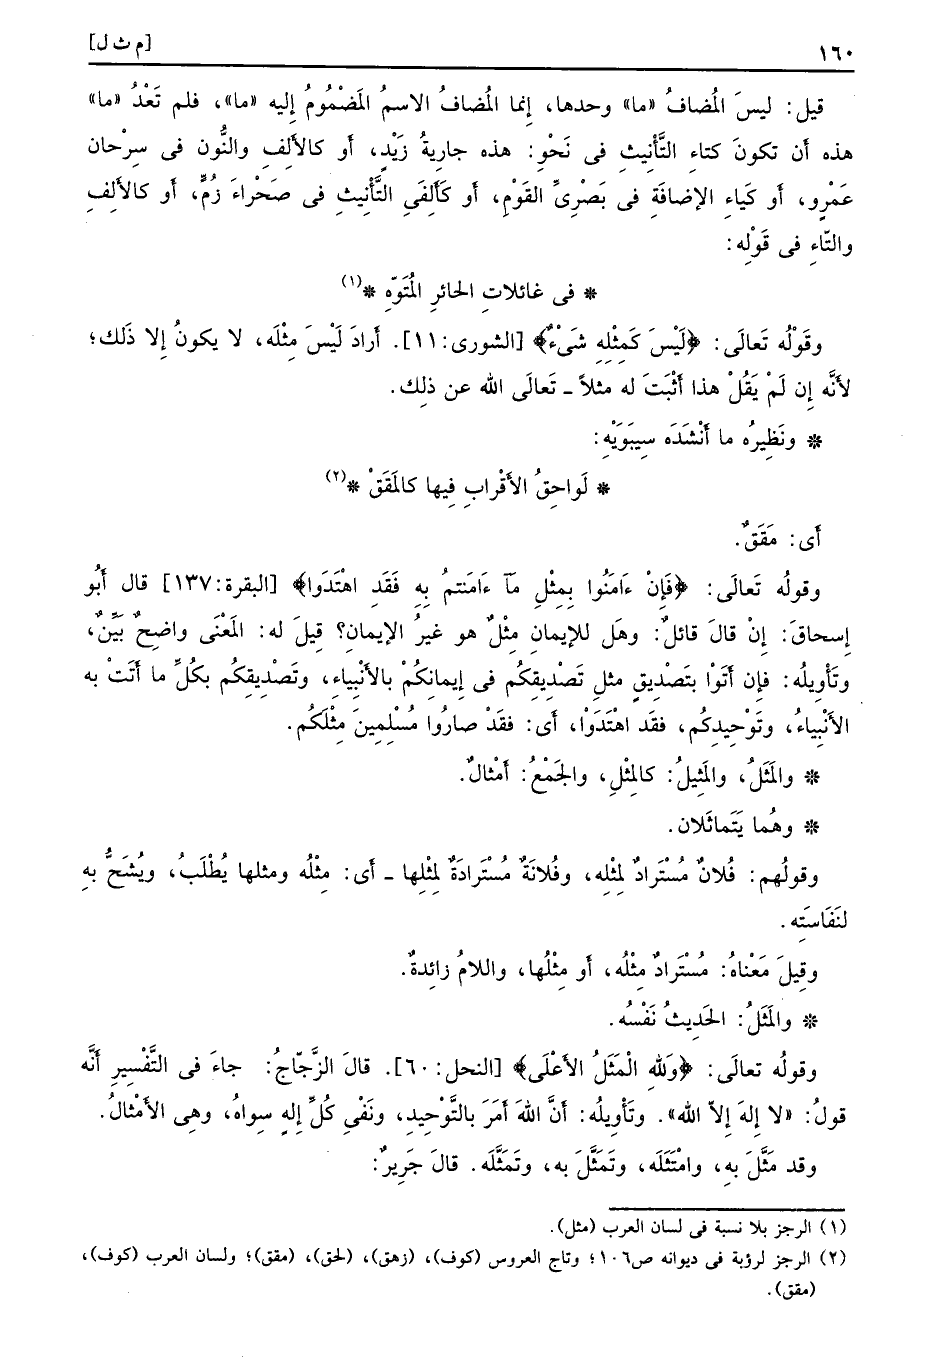 ١٦٠
[م ث ل]
قيل: ليسَ المُضافُ «ما» وحدها، إنما المُضافُ الاسمُ المَضْمُومُ إليه «ما»، فلم تَعْدُ «ما»
هذه أن تكونَ كتاءِ التَّأنيثِ فى نَحْوِ: هذه جاريةُ زَيْدٍ، أو كالألِفِ والنُّون فى سِرْحان
عَمْرٍو، أو كَياءِ الإضافَةِ فى بَصْرِىِّ القَوْمِ، أو كَأَلِفَىِ التَّأنيثِ فى صَحْراءَ زُمٍّ، أو كالألِفِ
والتّاءِ فى قَوْلِه:
* فى غائلاتِ الحائرِ المُتَوَّهِ *(١)
وقَوْلُه تَعالَى: ﴿لَيْسَ كَمثْلِهِ شَىْءٌ﴾ [الشورى:١١]. أرادَ لَيْسَ مِثْلَه، لا يكونُ إلا ذَلك؛
لأنَّه إن لَمْ يَقُلْ هذا أثْبَتَ له مثلاً ـ تَعالَى الله عن ذلِك.
* ونَظِيرُه ما أنْشَدَه سِيبَوَيْهِ:
* لَواحِقُ الأقْرابِ فِيها كالمَقَقْ *(٢)
أى: مَقَقٌ.
وقولُه تَعالَى: ﴿فَإِنْ ءَامَنُوا بِمِثْلِ مَآ ءَامَنتمُ بِهِ فَقَدِ اهْتَدَوا﴾ [البقرة:١٣٧] قال أبُو
إسحاقَ: إنْ قالَ قائلٌ: وهَل للإيمانِ مِثْلٌ هو غيرُ الإيمان؟ قيلَ له: المَعْنَى واضحٌ بَيِّنٌ،
وتَأْوِيلُه: فإن أتَوْا بتَصْديقٍ مثلِ تَصْدِيقِكُم فى إيمانكُمْ بالأنْبياءِ، وتَصْدِيقِكُم بكُلِّ ما أتَتْ به
الأنْبِياءُ، وتَوْحِيدِكُم، فقَد اهْتَدَوْا، أى: فقَدْ صارُوا مُسْلِمِينَ مِثْلَكُم.
* والمَثَلُ، والمَثِيلُ: كالمِثْلِ، والجَمْعُ: أمْثالٌ.
* وهُما يَتَماثَلان.
وقولُهم: فُلانٌ مُسْتَرادٌ لمِثْلِه، وفُلانَةٌ مُسْتَرادَةٌ لمِثْلِها ـ أى: مِثْلُه ومثلها يُطْلَبُ، ويُشَحُّ بهِ
لنَفَاسَتِه.
وقِيلَ مَعْناهُ: مُسْتَرادٌ مِثْلُه، أو مِثْلُها، واللامُ زائِدةٌ.
* والمَثَلُ: الحَدِيثُ نَفْسُه.
وقولُه تعالَى: ﴿وَلله الْمَثَلُ الأعْلَى﴾ [النحل:٦٠]. قالَ الزَّجّاجُ: جاءَ فى التَّفْسِيرِ أنَّه
قولُ: «لا إلهَ إلاّ الله». وتَأْوِيلُه: أنَّ اللهَ أمَرَ بالتَّوْحِيدِ، ونَفْىِ كُلِّ إلهٍ سواهُ، وهى الأمْثالُ.
وقد مَثَّلَ به، وامْتَثَلَه، وتَمَثَّلَ به، وتَمَثَّلَه. قالَ جَرِيرٌ:
(١) الرجز بلا نسبة فى لسان العرب (مثل).
(٢) الرجز لرؤبة فى ديوانه ص١٠٦؛ وتاج العروس (كوف)، (زهق)، (لحق)، (مقق)؛ ولسان العرب (كوف)،
(مقق).